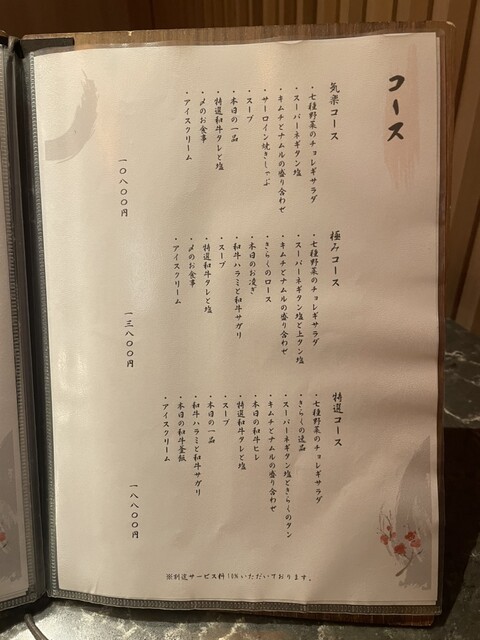 コース
気楽コース
・七種野菜のチョレギサラダ
・スーパーネギタン塩
・キムチとナムルの盛り合わせ
・サーロイン焼きしゃぶ
・スープ
・本日の一品
・特選和牛タレと塩
・〆のお食事
・アイスクリーム
一〇八〇〇円
極みコース
・七種野菜のチョレギサラダ
・スーパーネギタン塩と上タン塩
・キムチとナムルの盛り合わせ
・きらくのロース
・本日のお凌ぎ
・和牛ハラミと和牛サガリ
・スープ
・特選和牛タレと塩
・〆のお食事
・アイスクリーム
一三八〇〇円
特選コース
・七種野菜のチョレギサラダ
・きらくの逸品
・スーパーネギタン塩ときらくのタン
・キムチとナムルの盛り合わせ
・本日の和牛ヒレ
・特選和牛タレと塩
・スープ
・本日の一品
・和牛ハラミと和牛サガリ
・本日の和牛釜飯
・アイスクリーム
一八八〇〇円
※別途サービス料10%いただいております。